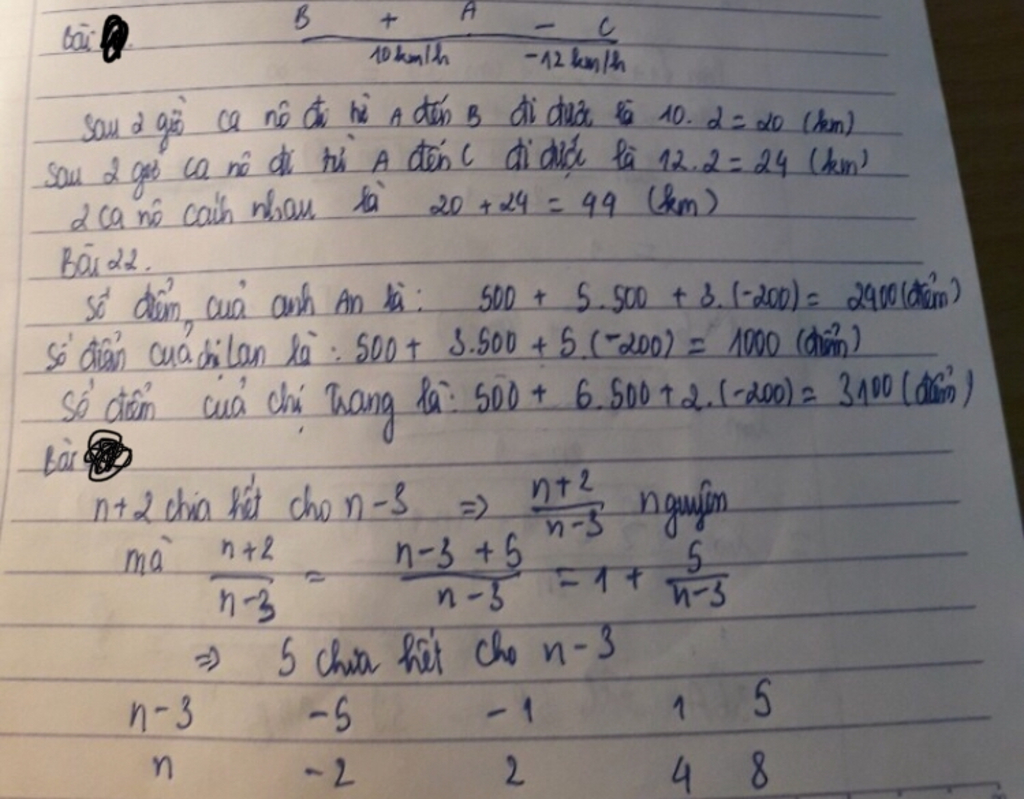 Bài
B + A - C
10km/h -12km/h
Sau 2 giờ ca nô đi từ A đến B đi được là 10. 2 = 20 (km)
Sau 2 giờ ca nô đi từ A đến C đi được là 12. 2 = 24 (km)
2 ca nô cách nhau là 20 + 24 = 44 (km)
Bài 22.
Số điểm của anh An là: 500 + 5.500 + 3.(-200) = 2400 (điểm)
Số điểm của chị Lan là: 500 + 3.500 + 5.(-200) = 1000 (điểm)
Số điểm của chị Trang là: 500 + 6.500 + 2.(-200) = 3100 (điểm)
Bài
n+2 chia hết cho n-3 => (n+2)/(n-3) nguyên
mà (n+2)/(n-3) = (n-3+5)/(n-3) = 1 + 5/(n-3)
=> 5 chia hết cho n-3
n-3 -5 -1 1 5
n -2 2 4 8